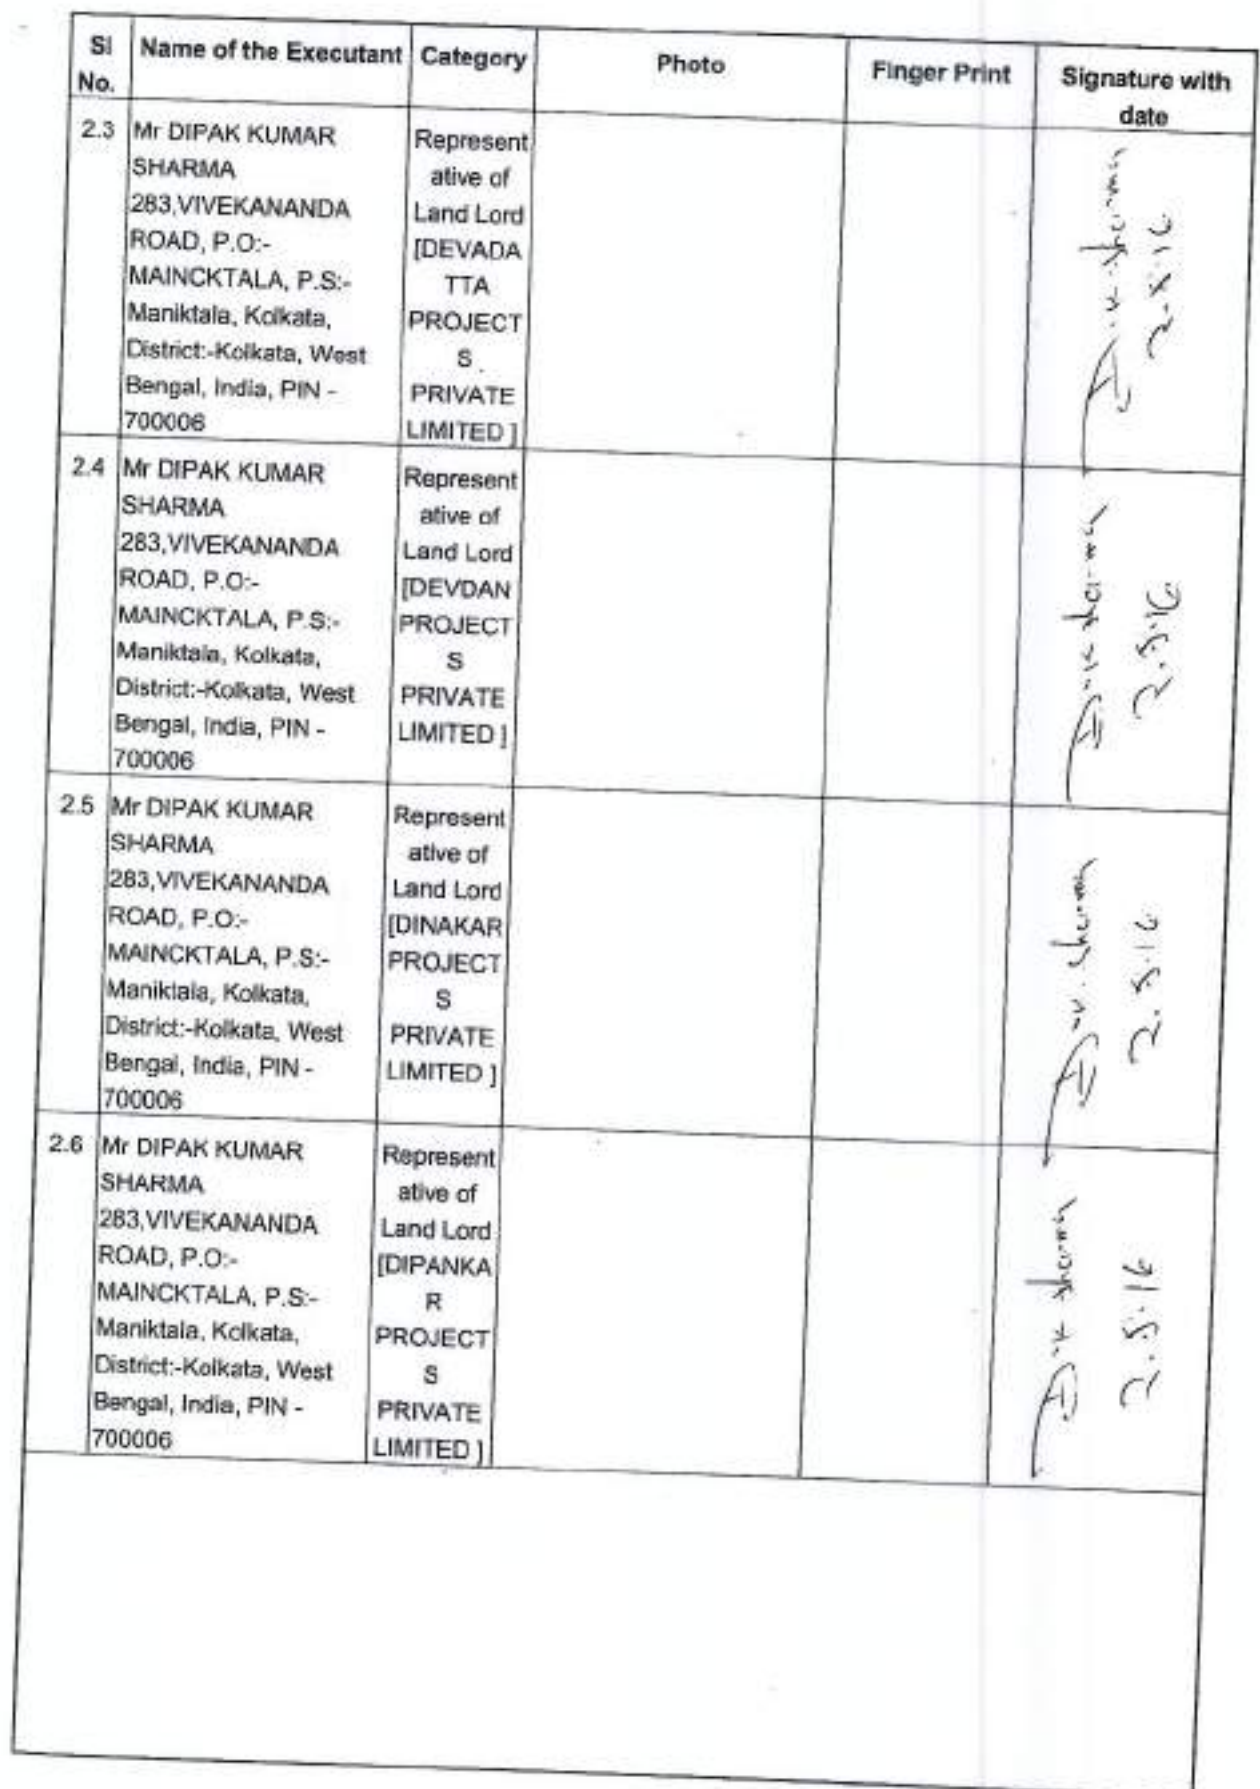 Sl No.
Name of the Executant
Category
Photo
Finger Print
Signature with date
2.3
Mr DIPAK KUMAR
SHARMA
283,VIVEKANANDA
ROAD, P.O:-
MAINCKTALA, P.S:-
Maniktala, Kolkata,
District:-Kolkata, West
Bengal, India, PIN -
700006
Represent
ative of
Land Lord
[DEVADA
TTA
PROJECT
S
PRIVATE
LIMITED ]
D. K. Sharma
2.5.16
2.4
Mr DIPAK KUMAR
SHARMA
283,VIVEKANANDA
ROAD, P.O:-
MAINCKTALA, P.S:-
Maniktala, Kolkata,
District:-Kolkata, West
Bengal, India, PIN -
700006
Represent
ative of
Land Lord
[DEVDAN
PROJECT
S
PRIVATE
LIMITED ]
D. K. Sharma
2.5.16
2.5
Mr DIPAK KUMAR
SHARMA
283,VIVEKANANDA
ROAD, P.O:-
MAINCKTALA, P.S:-
Maniktala, Kolkata,
District:-Kolkata, West
Bengal, India, PIN -
700006
Represent
ative of
Land Lord
[DINAKAR
PROJECT
S
PRIVATE
LIMITED ]
D. K. Sharma
2.5.16
2.6
Mr DIPAK KUMAR
SHARMA
283,VIVEKANANDA
ROAD, P.O:-
MAINCKTALA, P.S:-
Maniktala, Kolkata,
District:-Kolkata, West
Bengal, India, PIN -
700006
Represent
ative of
Land Lord
[DIPANKA
R
PROJECT
S
PRIVATE
LIMITED ]
D. K. Sharma
2.5.16